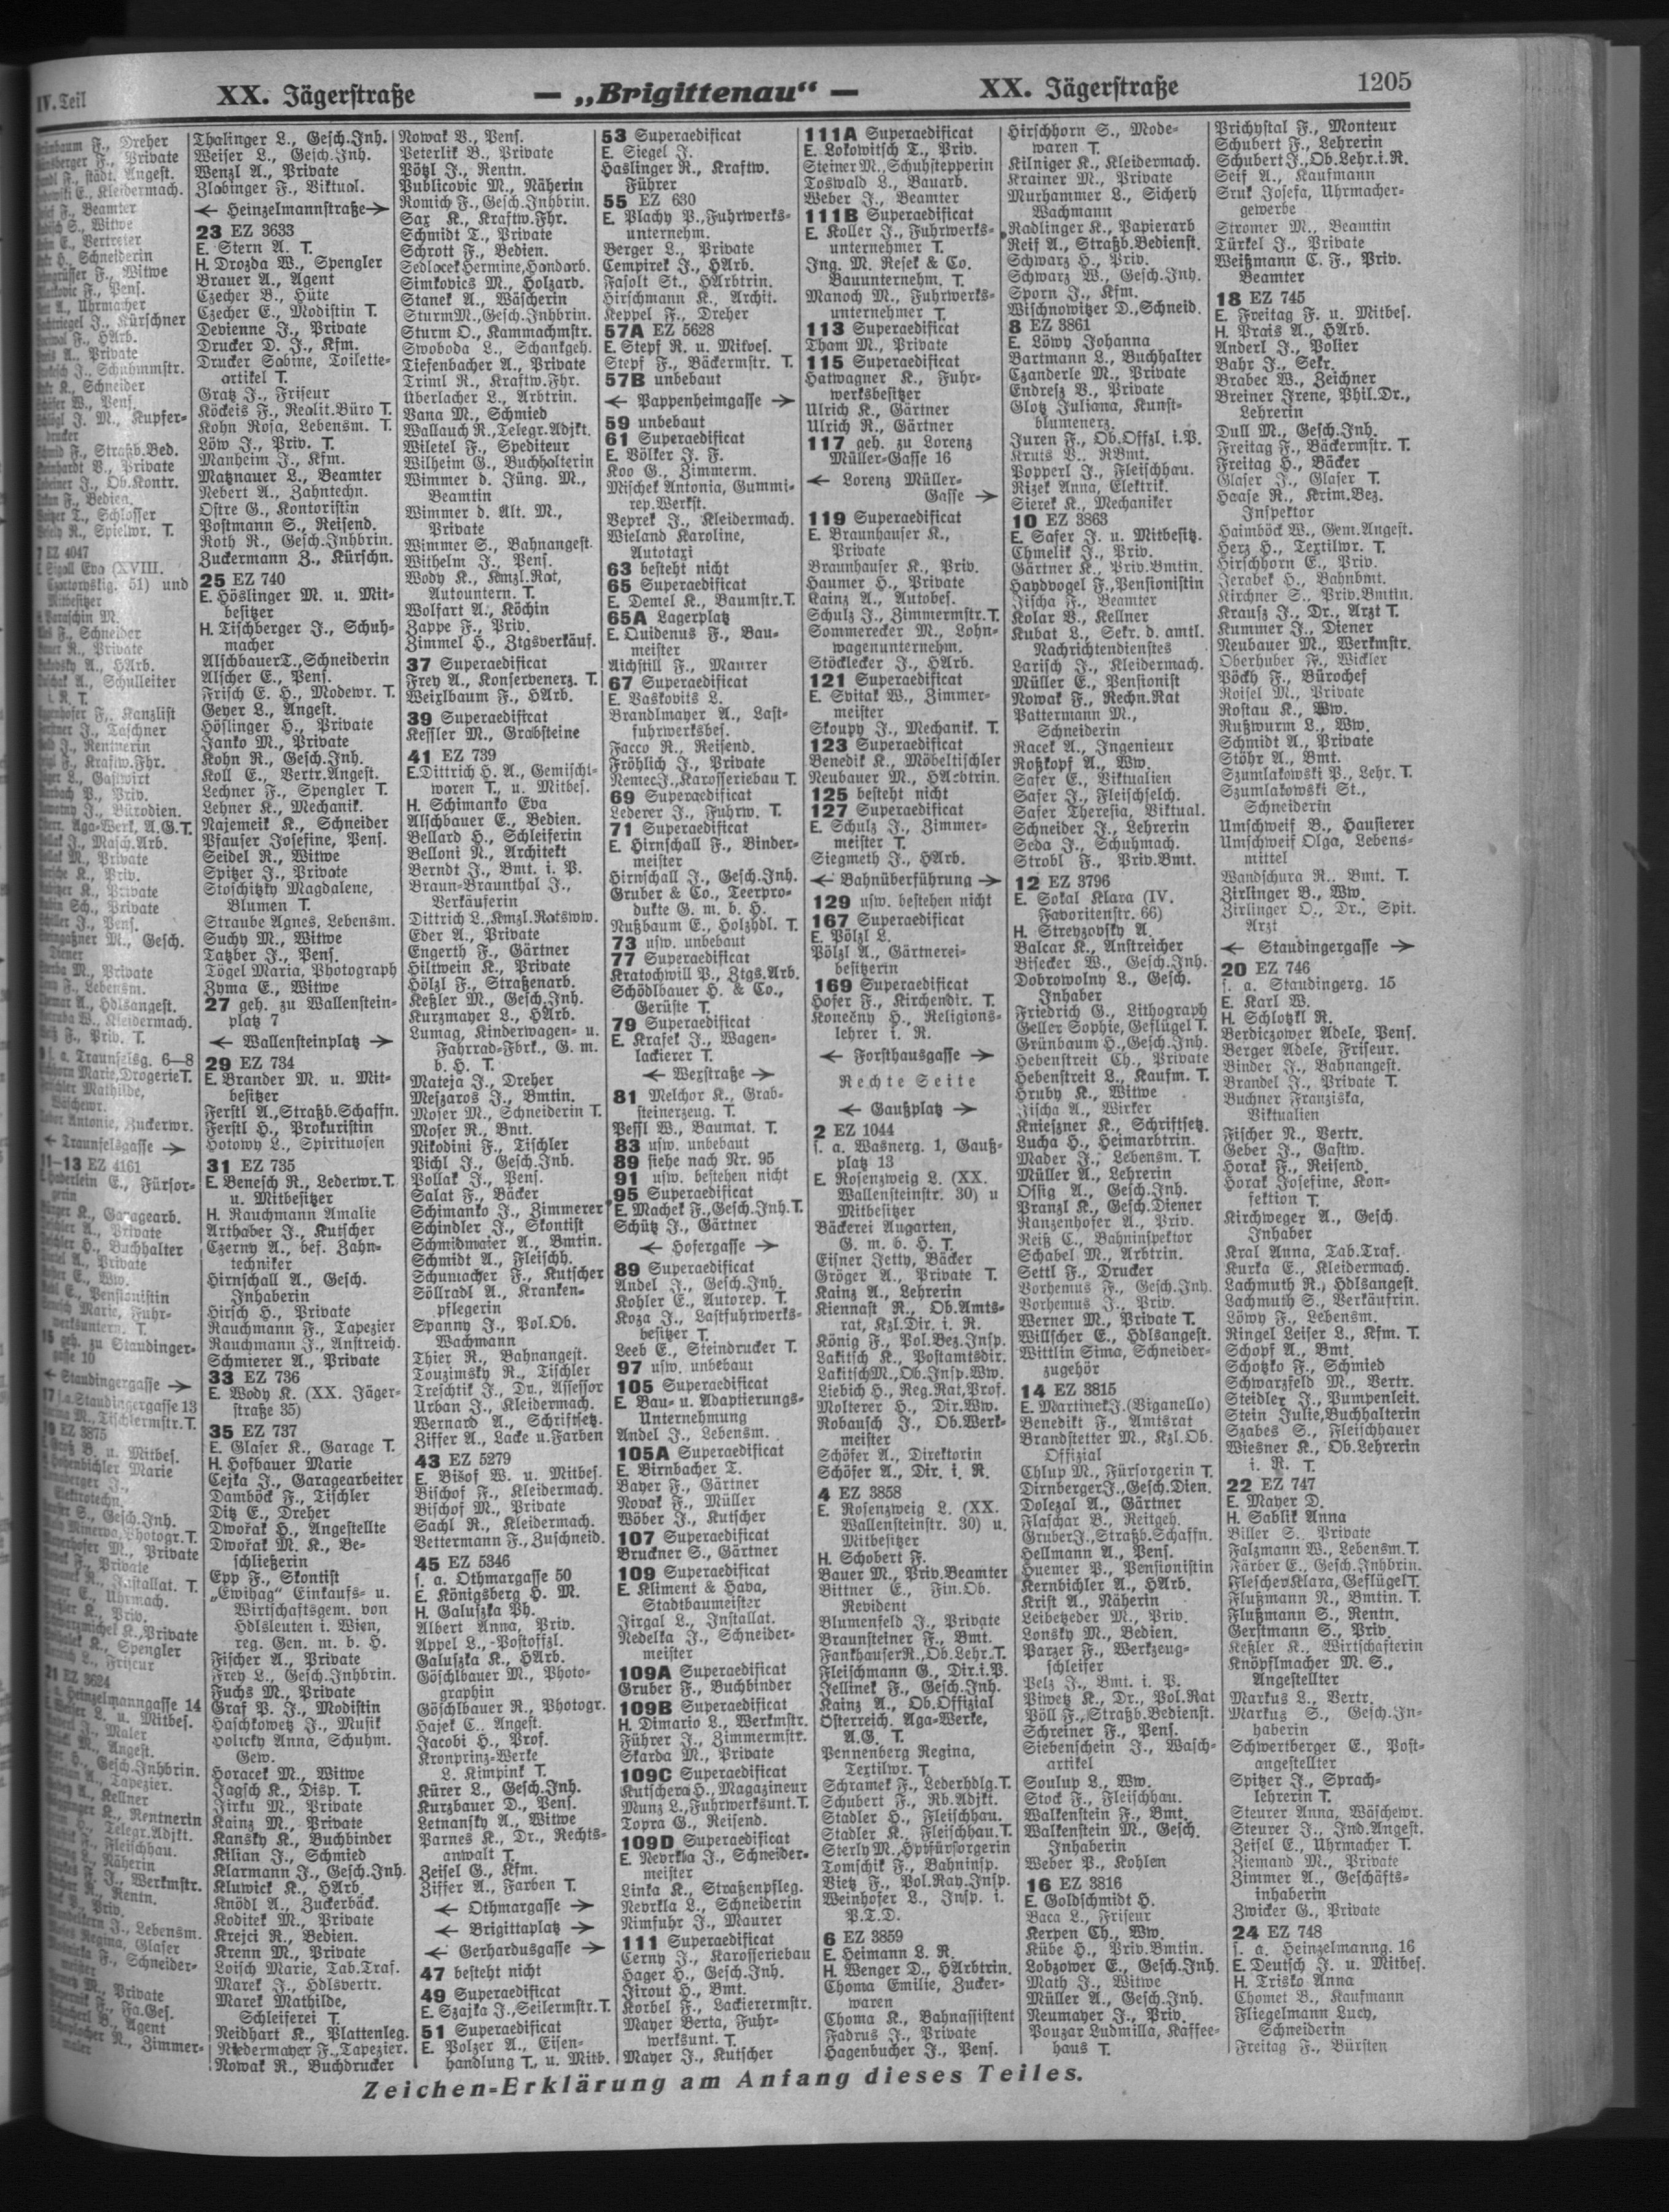 IV. Teil
XX. Jägerstraße
— „Brigittenau“ —
XX. Jägerstraße
1205
F., Dreher
F., Private
F., städt. Angest.
E., Kleidermach.
F., Beamter
S., Witwe
E., Vertreter
H., Schneiderin
F., Witwe
F., Pens.
A., Uhrmacher
J., Kürschner
F., HArb.
A., Private
J., Schuhmmstr.
K., Schneider
W., Pens.
J. M., Kupfer-
drucker
F., Straßb.Bed.
B., Private
J., Ob.Kontr.
F., Bedien.
T., Schlosser
R., Spielwr. T.
7 EZ 4047
E. Sigall Eva (XVIII.
51) und
Mitbesitzer
H. Paraschin M.
F., Schneider
R., Private
A., HArb.
A., Schulleiter
i. R. T.
F., Kanzlist
J., Taschner
J., Rentnerin
F., Kraftw.Fhr.
L., Gastwirt
P., Priv.
J., Bürodien.
Aga-Werk, A.G.T.
J., Masch.Arb.
M., Private
K., Priv.
K., Private
Sch., Private
J., Pens.
M., Gesch.
Diener
M., Private
F., Lebensm.
A., Hdlsangest.
W., Kleidermach.
F., Priv. T.
9 s. a. Traunfelsg. 6—8
Marie, Drogerie T.
Mathilde,
Wäschewr.
Antonie, Zuckerwr.
← Traunfelsgasse →
11—13 EZ 4161
E. Haderlein E., Fürsor-
gerin
K., Garagearb.
A., Private
H., Buchhalter
A., Private
E., Ww.
E., Pensionistin
Marie, Fuhr-
werksuntern. T.
15 geh. zu Staudinger-
gasse 10
← Staudingergasse →
17 s.a. Staudingergasse 13
M., Tischlermstr. T.
19 EZ 3875
E. Groß B. u. Mitbes.
H. Hohenbichler Marie
J.,
Elektrotechn.
S., Gesch.Inh.
Minerva, Photogr. T.
M., Private
F., Private
R., Installat. T.
E., Uhrmach.
K., Priv.
K., Private
K., Spengler
L., Friseur
21 EZ 3624
s. a. Heinzelmanngasse 14
L. u. Mitbes.
J., Maler
M., Angest.
H., Gesch.Inhbrin.
A., Tapezier.
A., Kellner
K., Rentnerin
H., Telegr.Adjkt.
F., Fleischhau.
L., Näherin
J., Werkmstr.
R., Rentn.
P., Priv.
J., Lebensm.
Regina, Glaser
F., Schneider-
meister
M., Private
F., Fa.Ges.
B., Agent
R., Zimmer-
maler
Thalinger L., Gesch.Inh.
Weiser L., Gesch.Inh.
Wenzl A., Private
Zlabinger F., Viktual.
← Heinzelmannstraße →
23 EZ 3633
E. Stern A. T.
H. Drozda W., Spengler
Brauer A., Agent
Czecher B., Hüte
Czecher E., Modistin T.
Devienne J., Private
Drucker D. J., Kfm.
Drucker Sabine, Toilette-
artikel T.
Gratz J., Friseur
Köckeis F., Realit.Büro T.
Kohn Rosa, Lebensm. T.
Löw J., Priv. T.
Manheim J., Kfm.
Matznauer L., Beamter
Nebert A., Zahntechn.
Ostre G., Kontoristin
Postmann S., Reisend.
Roth R., Gesch.Inhbrin.
Zuckermann Z., Kürschn.
25 EZ 740
E. Höslinger M. u. Mit-
besitzer
H. Tischberger J., Schuh-
macher
Alschbauer T., Schneiderin
Alscher E., Pens.
Frisch E. H., Modewr. T.
Geyer L., Angest.
Höslinger H., Private
Janko M., Private
Kohn R., Gesch.Inh.
Koll E., Vertr.Angest.
Lechner F., Spengler T.
Lehner K., Mechanik.
Najemeik K., Schneider
Pfauser Josefine, Pens.
Seidel R., Witwe
Spitzer J., Private
Stoschitzky Magdalene,
Blumen T.
Straube Agnes, Lebensm.
Suchy M., Witwe
Tatzber J., Pens.
Tögel Maria, Photograph
Zyma E., Witwe
27 geh. zu Wallenstein-
platz 7
← Wallensteinplatz →
29 EZ 734
E. Brander M. u. Mit-
besitzer
Ferstl A., Straßb.Schaffn.
Ferstl H., Prokuristin
Hotowy L., Spirituosen
31 EZ 735
E. Benesch R., Lederwr.T.
u. Mitbesitzer
H. Rauchmann Amalie
Arthaber J., Kutscher
Czerny A., bef. Zahn-
techniker
Hirnschall A., Gesch.
Inhaberin
Hirsch H., Private
Rauchmann F., Tapezier
Rauchmann J., Anstreich.
Schmierer A., Private
33 EZ 736
E. Wody K. (XX. Jäger-
straße 35)
35 EZ 737
E. Glaser K., Garage T.
H. Hofbauer Marie
Cejka J., Garagearbeiter
Damböck F., Tischler
Ditz E., Dreher
Dwořak H., Angestellte
Dwořak M. K., Be-
schließerin
Epp F., Skontist
„Ewihag“ Einkaufs- u.
Wirtschaftsgem. von
Hdlsleuten i. Wien,
reg. Gen. m. b. H.
Fischer A., Private
Frey L., Gesch.Inhbrin.
Fuchs M., Private
Graf P. J., Modistin
Haschkowetz J., Musik
Holicky Anna, Schuhm.
Gew.
Horacek M., Witwe
Jagsch K., Disp. T.
Jirku M., Private
Kainz M., Private
Kansky K., Buchbinder
Kilian J., Schmied
Klarmann J., Gesch.Inh.
Kluwick K., HArb.
Knödl A., Zuckerbäck.
Koditek M., Private
Krejci R., Bedien.
Krenn M., Private
Loisch Marie, Tab.Traf.
Marek J., Hdlsvertr.
Marek Mathilde,
Schleiferei T.
Neidhart K., Plattenleg.
Niedermayer F., Tapezier.
Nowak R., Buchdrucker
Nowak V., Pens.
Peterlik B., Private
Pötzl J., Rentn.
Publicovic M., Näherin
Romich F., Gesch.Inhbrin.
Sax K., Kraftw.Fhr.
Schmidt T., Private
Schrott F., Bedien.
Sedlacek Hermine, Handarb.
Simkovics M., Holzarb.
Stanek A., Wäscherin
Sturm M., Gesch.Inhbrin.
Sturm O., Kammachmstr.
Swoboda L., Schankgeh.
Tiefenbacher A., Private
Triml R., Kraftw.Fhr.
Überlacher L., Arbtrin.
Vana M., Schmied
Wallauch R., Telegr.Adjkt.
Wiletel F., Spediteur
Wilheim G., Buchhalterin
Wimmer d. Jüng. M.,
Beamtin
Wimmer d. Alt. M.,
Private
Wimmer S., Bahnangest.
Withelm J., Pens.
Wody K., Kmzl.Rat,
Autountern. T.
Wolfart A., Köchin
Zappe F., Priv.
Zimmel H., Ztgsverkäuf.
37 Superaedificat
Frey A., Konservenerz. T.
Weixlbaum F., HArb.
39 Superaedificat
Kessler M., Grabsteine
41 EZ 739
E. Dittrich H. A., Gemischt-
waren T., u. Mitbes.
H. Schimanko Eva
Alschbauer E., Bedien.
Bellard H., Schleiferin
Belloni N., Architekt
Berndt J., Bmt. i. P.
Braun-Braunthal J.,
Verkäuferin
Dittrich L., Kmzl.Ratsww.
Eder A., Private
Engerth F., Gärtner
Hiltwein K., Private
Hölzl F., Straßenarb.
Keßler M., Gesch.Inh.
Kurzmayer L., HArb.
Lumag, Kinderwagen- u.
Fahrrad-Fbrk., G. m.
b. H. T.
Mateja J., Dreher
Meszaros J., Bmtin.
Moser M., Schneiderin T.
Moser R., Bmt.
Nikodini F., Tischler
Pichl J., Gesch.Inh.
Pollak J., Pens.
Salat F., Bäcker
Schimanko J., Zimmerer
Schindler J., Skontist
Schmidmaier A., Bmtin.
Schmidt A., Fleischh.
Schumacher F., Kutscher
Söllradl A., Kranken-
pflegerin
Spanny J., Pol.Ob.
Wachmann
Thier R., Bahnangest.
Touzimsky R., Tischler
Treschtik J., Dr., Assessor
Urban J., Kleidermach.
Wernard A., Schriftsetz.
Ziffer A., Lacke u.Farben
43 EZ 5279
E. Bisof W. u. Mitbes.
Bischof F., Kleidermach.
Bischof M., Private
Sachl R., Kleidermach.
Vettermann F., Zuschneid.
45 EZ 5346
s. a. Othmargasse 50
E. Königsberg H. M.
H. Galuszka Ph.
Albert Anna, Priv.
Appel L., Postoffzl.
Galuszka K., HArb.
Göschlbauer M., Photo-
graphin
Göschlbauer R., Photogr.
Hajek C., Angest.
Jacobi H., Prof.
Kronprinz-Werke
L. Kimpink T.
Kürer L., Gesch.Inh.
Kurzbauer D., Pens.
Letnansky A., Witwe
Parnes K., Dr., Rechts-
anwalt T.
Zeisel G., Kfm.
Ziffer A., Farben T.
← Othmargasse →
← Brigittaplatz →
← Gerhardusgasse →
47 besteht nicht
49 Superaedificat
E. Szajka J., Seilermstr.T.
51 Superaedificat
E. Polzer A., Eisen-
handlung T., u. Mitb.
53 Superaedificat
E. Siegel J.
Haslinger R., Kraftw.
Führer
55 EZ 630
E. Plachy P., Fuhrwerks-
unternehm.
Berger L., Private
Cempirek J., HArb.
Fasolt St., HArbtrin.
Hirschmann K., Archit.
Keppel F., Dreher
57A EZ 5628
E. Stepf R. u. Mitbes.
Stepf F., Bäckermstr. T.
57B unbebaut
← Pappenheimgasse →
59 unbebaut
61 Superaedificat
E. Völker J. F.
Koo G., Zimmerm.
Mischek Antonia, Gummi-
rep.Werkst.
Veprek J., Kleidermach.
Wieland Karoline,
Autotaxi
63 besteht nicht
65 Superaedificat
E. Demel K., Baumstr.T.
65A Lagerplatz
E. Quidenus F., Bau-
meister
Aichstill F., Maurer
67 Superaedificat
E. Vaskovits L.
Brandlmayer A., Last-
fuhrwerksbes.
Facco R., Reisend.
Fröhlich J., Private
Nemec J., Karosseriebau T.
69 Superaedificat
Lederer J., Fuhrw. T.
71 Superaedificat
E. Hirnschall F., Binder-
meister
Hirnschall J., Gesch.Inh.
Gruber & Co., Teerpro-
dukte G. m. b. H.
Nußbaum E., Holzhdl. T.
73 usw. unbebaut
77 Superaedificat
Kratochwill P., Ztgs.Arb.
Schödlbauer H. & Co.,
Gerüste T.
79 Superaedificat
E. Krasek J., Wagen-
lackierer T.
← Wexstraße →
81 Melchor K., Grab-
steinerzeug. T.
Pessl W., Baumat. T.
83 usw. unbebaut
89 siehe nach Nr. 95
91 usw. bestehen nicht
95 Superaedificat
E. Machek F., Gesch.Inh.T.
Schütz J., Gärtner
← Hofergasse →
89 Superaedificat
Andel J., Gesch.Inh.
Kohler E., Autorep. T.
Koza J., Lastfuhrwerks-
besitzer T.
Leeb E., Steindrucker T.
97 usw. unbebaut
105 Superaedificat
E. Bau- u. Adaptierungs-
Unternehmung
Andel J., Lebensm.
105A Superaedificat
E. Birnbacher T.
Bayer F., Gärtner
Novak F., Müller
Wöber J., Kutscher
107 Superaedificat
Bruckner S., Gärtner
109 Superaedificat
E. Kliment & Hava,
Stadtbaumeister
Jirgal L., Installat.
Nedelka J., Schneider-
meister
109A Superaedificat
Gruber F., Buchbinder
109B Superaedificat
H. Dimario L., Werkmstr.
Führer J., Zimmermstr.
Skarda M., Private
109C Superaedificat
Kutschera H., Magazineur
Munz L., Fuhrwerksunt. T.
Topra G., Reisend.
109D Superaedificat
E. Nevrkla J., Schneider-
meister
Linka K., Straßenpfleg.
Nevrkla L., Schneiderin
Nimfuhr J., Maurer
111 Superaedificat
Cerny J., Karosseriebau
Hager H., Gesch.Inh.
Jirout H., Bmt.
Korbel F., Lackierermstr.
Mayer Berta, Fuhr-
werksunt. T.
Mayer J., Kutscher
111A Superaedificat
E. Lokowitsch T., Priv.
Steiner M., Schuhstepperin
Toswald L., Bauarb.
Weber J., Beamter
111B Superaedificat
E. Koller J., Fuhrwerks-
unternehmer T.
Ing. M. Resek & Co.
Bauunternehm. T.
Manoch M., Fuhrwerks-
unternehmer T.
113 Superaedificat
Tham M., Private
115 Superaedificat
Hatwagner K., Fuhr-
werksbesitzer
Ulrich K., Gärtner
Ulrich R., Gärtner
117 geh. zu Lorenz
Müller-Gasse 16
← Lorenz Müller-
Gasse →
119 Superaedificat
E. Braunhauser K.,
Private
Braunhauser K., Priv.
Haumer H., Private
Kainz A., Autobes.
Schulz J., Zimmermstr. T.
Sommerecker M., Lohn-
wagenunternehm.
Stöcklecker J., HArb.
121 Superaedificat
E. Svitak W., Zimmer-
meister
Skoupy J., Mechanik. T.
123 Superaedificat
Benedik K., Möbeltischler
Neubauer M., HArbtrin.
125 besteht nicht
127 Superaedificat
E. Schulz J., Zimmer-
meister T.
Siegmeth J., HArb.
← Bahnüberführung →
129 usw. bestehen nicht
167 Superaedificat
E. Pölzl L.
Pölzl A., Gärtnerei-
besitzerin
169 Superaedificat
Hofer F., Kirchendir. T.
Konečny H., Religions-
lehrer i. R.
← Forsthausgasse →
Rechte Seite
← Gaußplatz →
2 EZ 1044
s. a. Wasnerg. 1, Gauß-
platz 13
E. Rosenzweig L. (XX.
Wallensteinstr. 30) u
Mitbesitzer
Bäckerei Augarten,
G. m. b. H. T.
Eisner Jetty, Bäcker
Gröger A., Private T.
Kainz A., Lehrerin
Kiennast R., Ob.Amts-
rat, Kzl.Dir. i. R.
König F., Pol.Bez.Insp.
Lakitsch K., Postamtsdir.
Lakitsch M., Ob.Insp.Ww.
Liebich H., Reg.Rat, Prof.
Molterer H., Dir.Ww.
Robausch J., Ob.Werk-
meister
Schöfer A., Direktorin
Schöfer A., Dir. i. R.
4 EZ 3858
E. Rosenzweig L. (XX.
Wallensteinstr. 30) u.
Mitbesitzer
H. Schobert F.
Bauer M., Priv.Beamter
Bittner E., Fin.Ob.
Revident
Blumenfeld J., Private
Braunsteiner F., Bmt.
Fankhauser R., Ob.Lehr. T.
Fleischmann G., Dir.i.P.
Jellinek F., Gesch.Inh.
Kainz A., Ob.Offizial
Österreich. Aga-Werke,
A.G. T.
Pennenberg Regina,
Textilwr. T.
Schramek F., Lederhdlg.T.
Schubert F., Rb.Adjkt.
Stadler H., Fleischhau.
Stadler K., Fleischhau. T.
Sterly M., Hptfürsorgerin
Tomschik F., Bahninsp.
Vietz F., Pol.Ray.Insp.
Weinhofer L., Insp. i.
P.T.D.
6 EZ 3859
E. Heimann L. R.
H. Wenger D., HArbtrin.
Choma Emilie, Zucker-
waren
Choma K., Bahnassistent
Fadrus J., Private
Hagenbucher J., Pens.
Hirschhorn S., Mode-
waren T.
Kilniger K., Kleidermach.
Krainer M., Private
Murhammer L., Sicherh
Wachmann
Radlinger K., Papierarb
Reif A., Straßb.Bedienst.
Schwarz H., Priv.
Schwarz W., Gesch.Inh.
Sporn J., Kfm.
Wischnowitzer D., Schneid.
8 EZ 3861
E. Löwy Johanna
Bartmann L., Buchhalter
Czanderle M., Private
Endresz V., Private
Glotz Juliana, Kunst-
blumenerz.
Juren F., Ob.Offzl. i.P.
Kruis V., RBmt.
Popperl J., Fleischhau.
Rizek Anna, Elektrik.
Sierek K., Mechaniker
10 EZ 3863
E. Safer J. u. Mitbesitz.
Chmelik J., Priv.
Gärtner K., Priv.Bmtin.
Haydvogel F., Pensionistin
Jischa F., Beamter
Kolar V., Kellner
Kubat L., Sekr. d. amtl.
Nachrichtendienstes
Larisch J., Kleidermach.
Müller E., Pensionist
Nowak F., Rechn.Rat
Pattermann M.,
Schneiderin
Racek A., Ingenieur
Roßkopf A., Ww.
Safer E., Viktualien
Safer J., Fleischselch.
Safer Theresia, Viktual.
Schneider J., Lehrerin
Seda J., Schuhmach.
Strobl F., Priv.Bmt.
12 EZ 3796
E. Sokal Klara (IV.
Favoritenstr. 66)
H. Streyzovsky A.
Balcar K., Anstreicher
Bisecker W., Gesch.Inh.
Dobrowolny L., Gesch.
Inhaber
Friedrich G., Lithograph
Geller Sophie, Geflügel T.
Grünbaum H., Gesch.Inh.
Hebenstreit Ch., Private
Hebenstreit L., Kaufm. T.
Hruby K., Witwe
Jischa A., Wirker
Knieszner K., Schriftsetz.
Lucha H., Heimarbtrin.
Mader J., Lebensm. T.
Müller A., Lehrerin
Ossig A., Gesch.Inh.
Pranzl K., Gesch.Diener
Ranzenhofer A., Priv.
Reiß C., Bahninspektor
Schabel M., Arbtrin.
Settl F., Drucker
Vorhemus F., Gesch.Inh.
Vorhemus J., Priv.
Werner M., Private T.
Willscher E., Hdlsangest.
Wittlin Sima, Schneider-
zugehör
14 EZ 3815
E. Martinek J. (Viganello)
Benedikt F., Amtsrat
Brandstetter M., Kzl.Ob.
Offizial
Chlup M., Fürsorgerin T.
Dirnberger J., Gesch.Dien.
Dolezal A., Gärtner
Flaschar B., Reitgeh.
Gruber J., Straßb.Schaffn.
Hellmann A., Pens.
Huemer P., Pensionistin
Kernbichler A., HArb.
Krist A., Näherin
Leibetzeder M., Priv.
Lonsky M., Bedien.
Parzer F., Werkzeug-
schleifer
Pelz J., Bmt. i. P.
Piwetz K., Dr., Pol.Rat
Pöll F., Straßb.Bedienst.
Schreiner F., Pens.
Siebenschein J., Wasch-
artikel
Soulup L., Ww.
Stock F., Fleischhau.
Walkenstein F., Bmt.
Walkenstein M., Gesch.
Inhaberin
Weber P., Kohlen
16 EZ 3816
E. Goldschmidt H.
Baca L., Friseur
Kerpen Ch., Ww.
Kübe H., Priv.Bmtin.
Lobzower E., Gesch.Inh.
Math J., Witwe
Müller A., Gesch.Inh.
Neumayer J., Priv.
Pouzar Ludmilla, Kaffee-
haus T.
Prichystal F., Monteur
Schubert F., Lehrerin
Schubert J., Ob.Lehr.i.R.
Seif A., Kaufmann
Sruk Josefa, Uhrmacher-
gewerbe
Stromer M., Beamtin
Türkel J., Private
Weißmann C. F., Priv.
Beamter
18 EZ 745
E. Freitag F. u. Mitbes.
H. Prais A., HArb.
Anderl J., Polier
Bahr J., Sekr.
Brabec W., Zeichner
Breiner Irene, Phil.Dr.,
Lehrerin
Dull M., Gesch.Inh.
Freitag F., Bäckermstr. T.
Freitag H., Bäcker
Glaser J., Glaser T.
Haase R., Krim.Bez.
Inspektor
Haimböck W., Gem.Angest.
Herz H., Textilwr. T.
Hirschhorn E., Priv.
Jerabek H., Bahnbmt.
Kirchner S., Priv.Bmtin.
Krausz J., Dr., Arzt T.
Kummer J., Diener
Neubauer M., Werkmstr.
Oberhuber F., Wickler
Pöckh F., Bürochef
Roisel M., Private
Rostau K., Ww.
Rußwurm L., Ww.
Schmidt A., Private
Stöhr A., Bmt.
Szumlakowski P., Lehr. T.
Szumlakowski St.,
Schneiderin
Umschweif B., Hausierer
Umschweif Olga, Lebens-
mittel
Wandschura R., Bmt. T.
Zirlinger B., Ww.
Zirlinger O., Dr., Spit.
Arzt
← Staudingergasse →
20 EZ 746
s. a. Staudingerg. 15
E. Karl W.
H. Schlotzkl R.
Berdiczower Adele, Pens.
Berger Adele, Friseur.
Binder J., Bahnangest.
Brandel J., Private T.
Buchner Franziska,
Viktualien
Fischer N., Vertr.
Geber J., Gastw.
Horak F., Reisend.
Horak Josefine, Kon-
fektion T.
Kirchweger A., Gesch.
Inhaber
Kral Anna, Tab.Traf.
Kurka E., Kleidermach.
Lachmuth R., Hdlsangest.
Lachmuth S., Verkäufrin.
Löwy F., Lebensm.
Ringel Leiser L., Kfm. T.
Schopf A., Bmt.
Schotzko F., Schmied
Schwarzfeld M., Vertr.
Steidler J., Pumpenleit.
Stein Julie, Buchhalterin
Szabes S., Fleischhauer
Wiesner K., Ob.Lehrerin
i. R. T.
22 EZ 747
E. Mayer D.
H. Sablik Anna
Biller S., Private
Falzmann W., Lebensm. T.
Färber E., Gesch.Inhbrin.
Flescher Klara, Geflügel T.
Flußmann N., Bmtin. T.
Flußmann S., Rentn.
Gerstmann S., Priv.
Keßler K., Wirtschafterin
Knöpflmacher M. S.,
Angestellter
Markus L., Vertr.
Markus S., Gesch.In-
haberin
Schwertberger E., Post-
angestellter
Spitzer J., Sprach-
lehrerin T.
Steurer Anna, Wäschewr.
Steurer J., Ind.Angest.
Zeisel E., Uhrmacher T.
Ziemand M., Private
Zimmer A., Geschäfts-
inhaberin
Zwicker G., Private
24 EZ 748
s. a. Heinzelmanng. 16
E. Deutsch J. u. Mitbes.
H. Trisko Anna
Chomet B., Kaufmann
Fliegelmann Lucy,
Schneiderin
Freitag F., Bürsten
Zeichen-Erklärung am Anfang dieses Teiles.